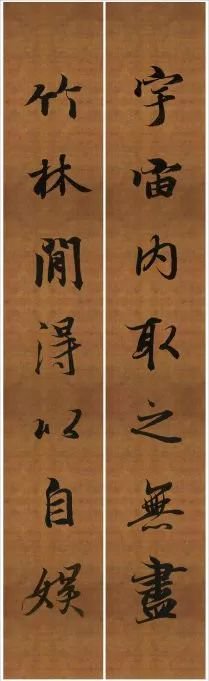 宇宙内取之無盡
竹林間得以自娱